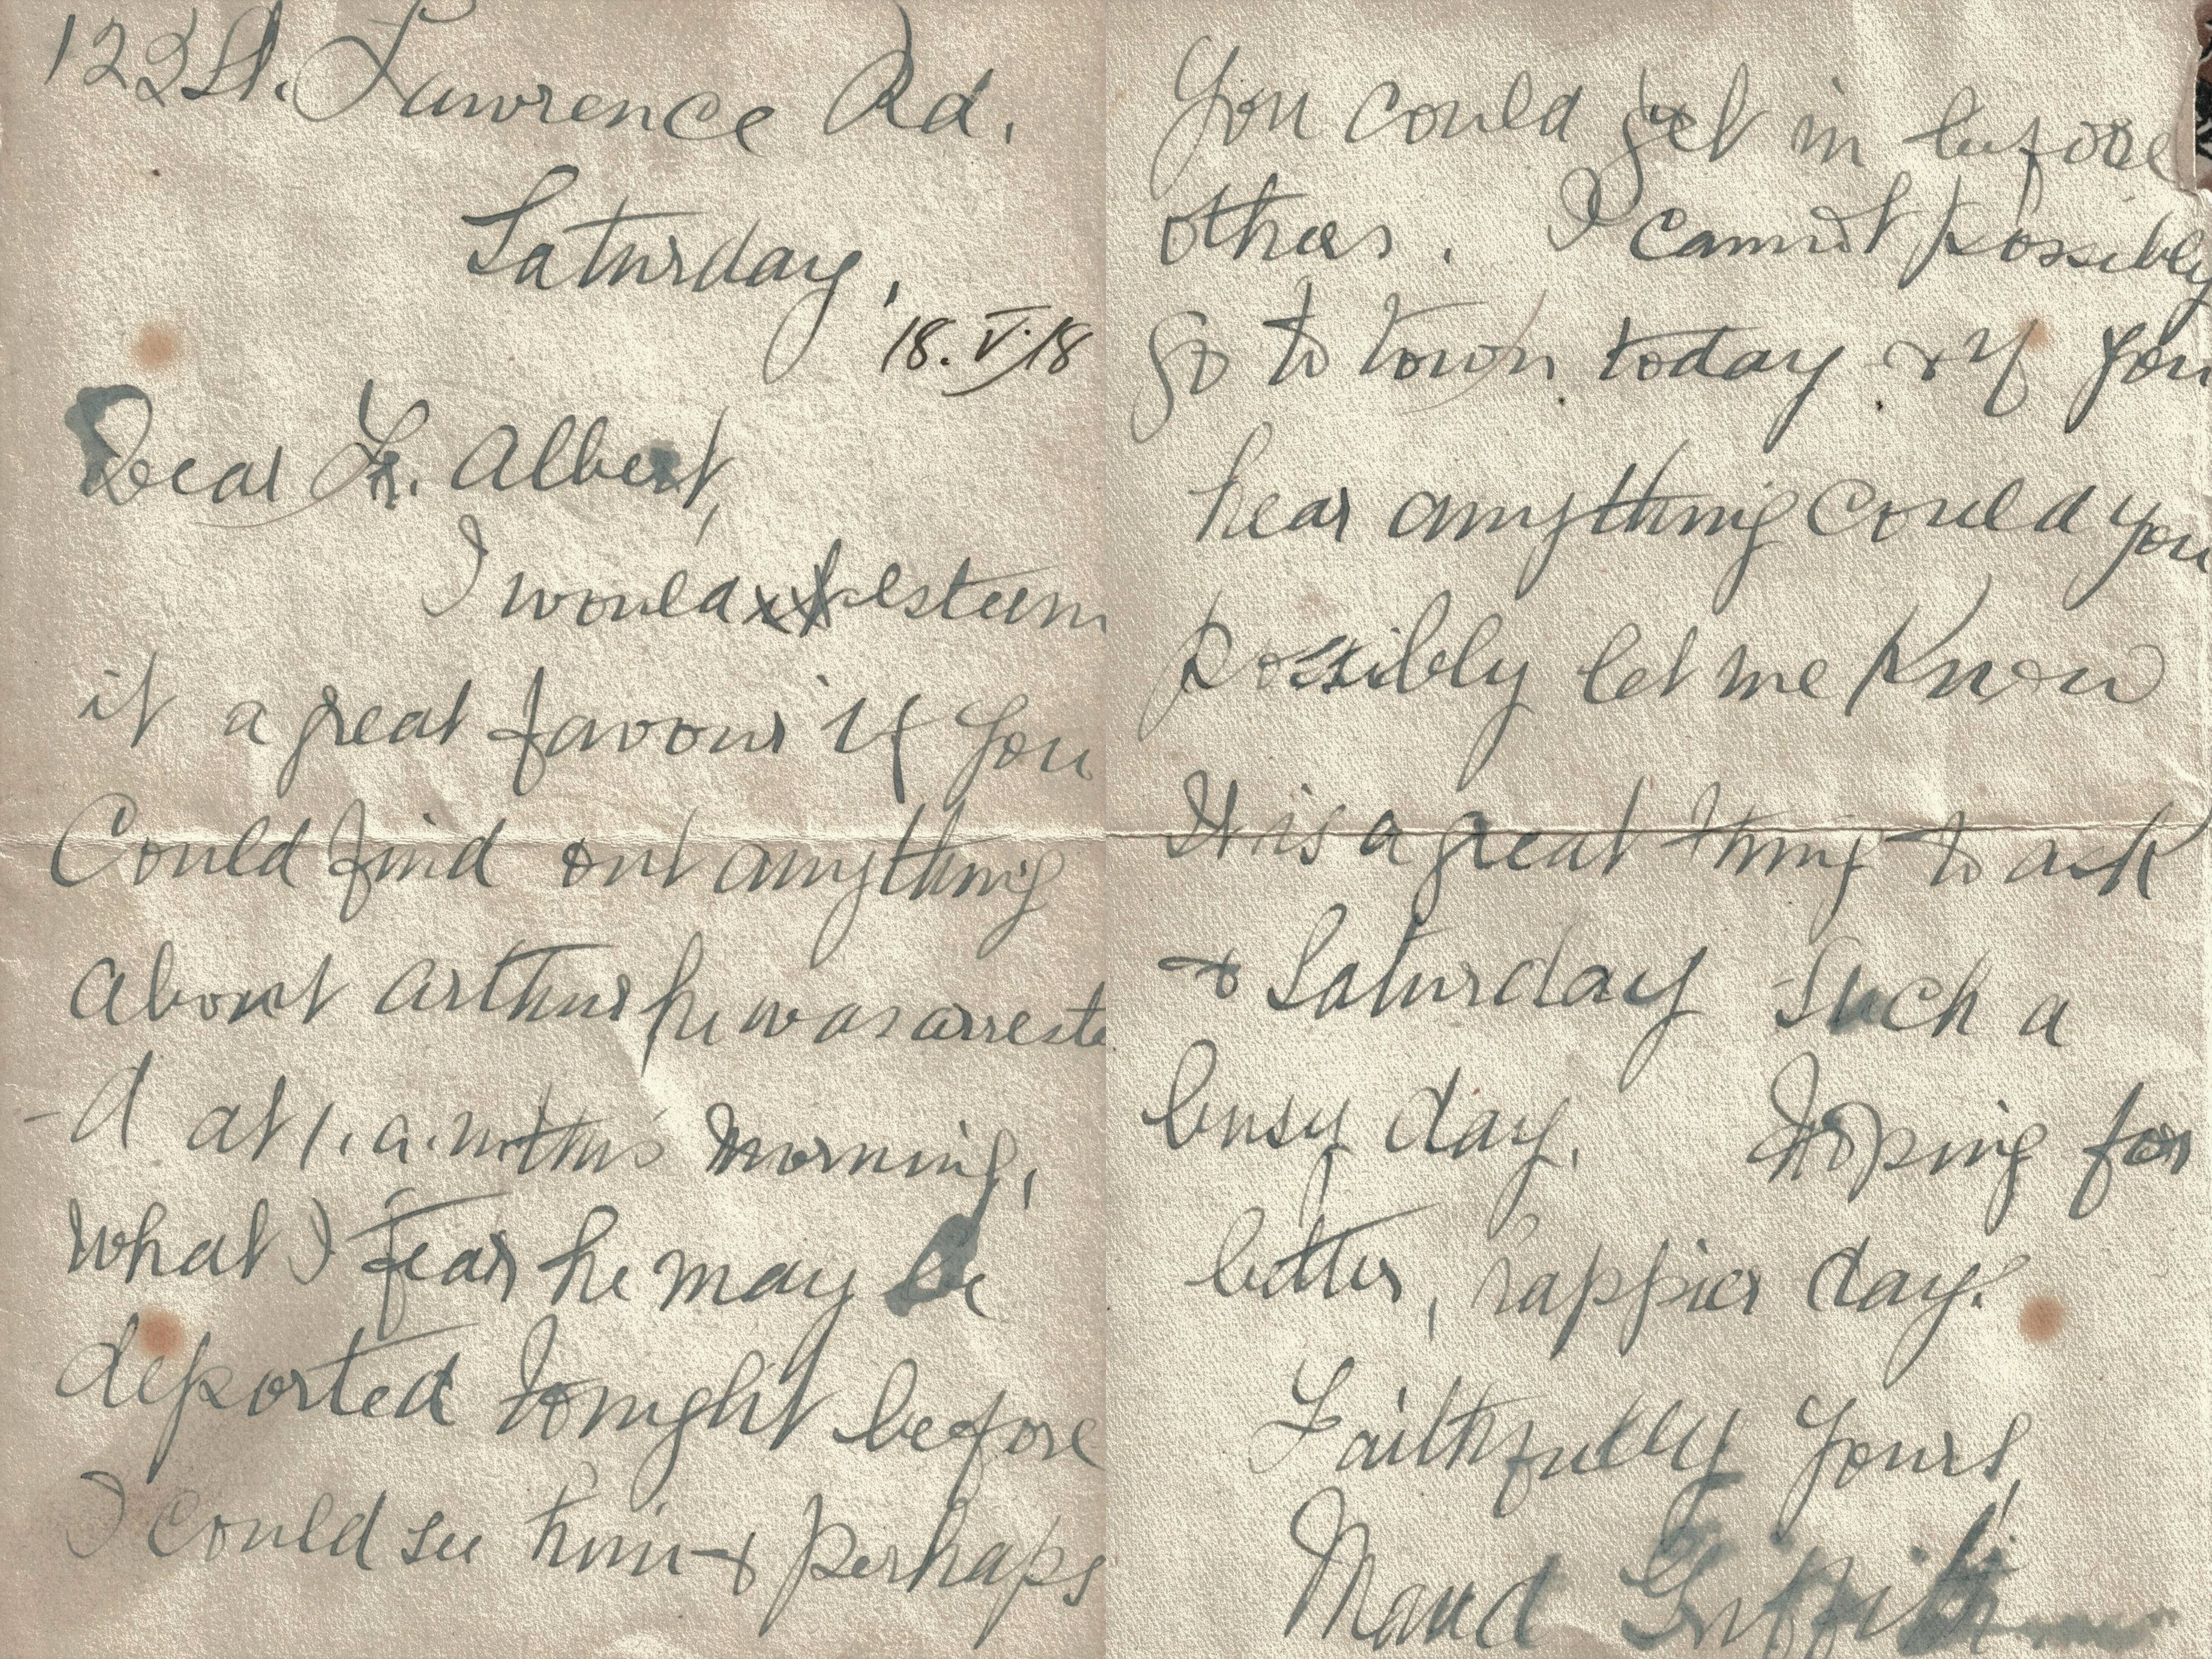 122 St. Lawrence Rd.
Saturday,
18.V.18
Dear Fr. Albert,
I would esteem
it a great favour if you
Could find out anything
about arthur he was arreste
-d at 1. a.m this morning,
what I fear he may be
deported tonight before
I could see him & perhaps
you could get in before
others. I cannot possibly
go to town today & if you
hear anything could you
possibly let me know
It is a great thing to ask
& Saturday such a
busy day. Hoping for
better, happier days.
Faithfully yours,
Maud Griffith